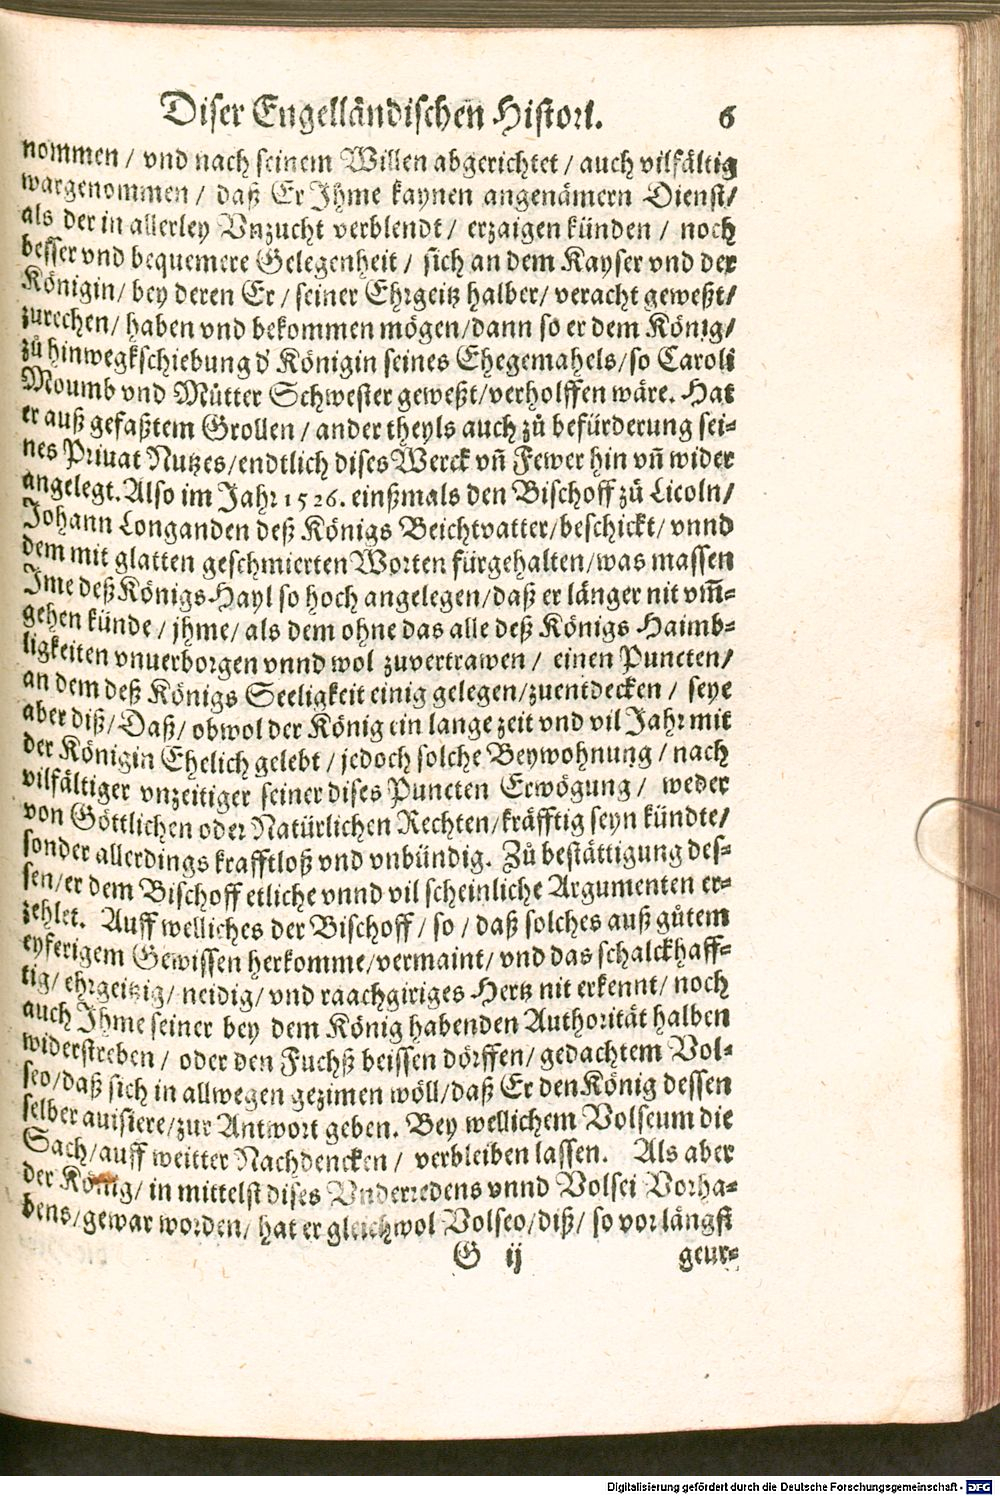 Diser Engelländischen Histori. 6
nommen / vnd nach seinem Willen abgerichtet / auch vilfältig
wargenommen / daß Er Ihme kaynen angenämern Dienst/
als der in allerley Vnzucht verblendt / erzaigen künden / noch
besser vnd bequemere Gelegenheit / sich an dem Kayser vnd der
Königin/ bey deren Er / seiner Ehrgeitz halber/ veracht geweßt/
zurechen/ haben vnd bekommen mögen/dann so er dem König/
zů hinwegkschiebung d' Königin seines Ehegemahels/so Caroli
Moumb vnd Můtter Schwester geweßt/verholffen wäre. Hat
er auß gefaßtem Grollen / ander theyls auch zů befürderung sei-
nes Priuat Nutzes/endtlich dises Werck vñ Fewer hin vñ wider
angelegt. Also im Jahr 1526. einßmals den Bischoff zů Licoln/
Johann Longanden deß Königs Beichtvatter/beschickt/ vnnd
dem mit glatten geschmierten Worten fürgehalten/was massen
Ime deß Königs Hayl so hoch angelegen/daß er länger nit vm̃-
gehen künde / jhme/ als dem ohne das alle deß Königs Haimb-
ligkeiten vnuerborgen vnnd wol zuvertrawen / einen Puncten/
an dem deß Königs Seeligkeit einig gelegen/zuentdecken / seye
aber diß/ Daß/ obwol der König ein lange zeit vnd vil Jahr mit
der Königin Ehelich gelebt / jedoch solche Beywohnung / nach
vilfältiger vnzeitiger seiner dises Puncten Erwögung / weder
von Göttlichen oder Natürlichen Rechten/kräfftig seyn kündte/
sonder allerdings krafftloß vnd vnbündig. Zů bestättigung des-
sen/er dem Bischoff etliche vnnd vil scheinliche Argumenten er-
zehlet. Auff welliches der Bischoff / so / daß solches auß gůtem
eyferigem Gewissen herkomme/vermaint/ vnd das schalckhaff-
tig/ ehrgeitzig/ neidig/ vnd raachgiriges Hertz nit erkennt/ noch
auch Ihme seiner bey dem König habenden Authorität halben
widerstreben / oder den Fuchß beissen dörffen/ gedachtem Vol-
seo/daß sich in allwegen gezimen wöll/daß Er den König dessen
selber auisiere/zur Antwort geben. Bey wellichem Volseum die
Sach/auff weitter Nachdencken / verbleiben lassen. Als aber
der König/ in mittelst dises Vnderredens vnnd Volsei Vorha-
bens/gewar worden/ hat er gleichwol Volseo/diß/ so vor längst
G ij geur-
Digitalisierung gefördert durch die Deutsche Forschungsgemeinschaft - DFG